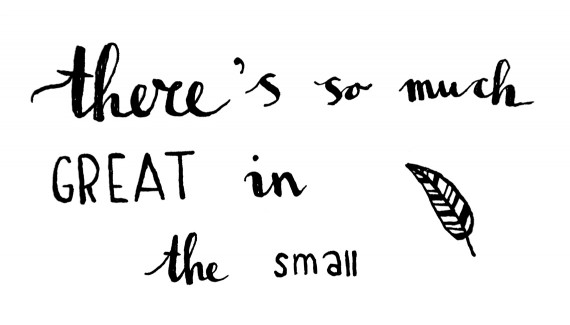 there's so much
GREAT in
the small